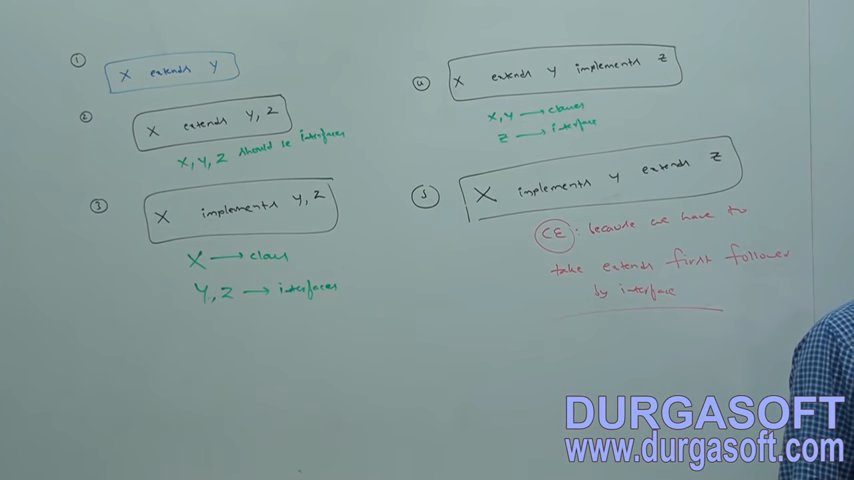 ① X extends Y
② X extends Y, Z
X, Y, Z should be interfaces
③ X implements Y, Z
X → class
Y, Z → interfaces
④ X extends Y implements Z
X, Y → classes
Z → interface
⑤ X implements Y extends Z
CE: because we have to
take extends first followed
by interface
DURGASOFT
www.durgasoft.com